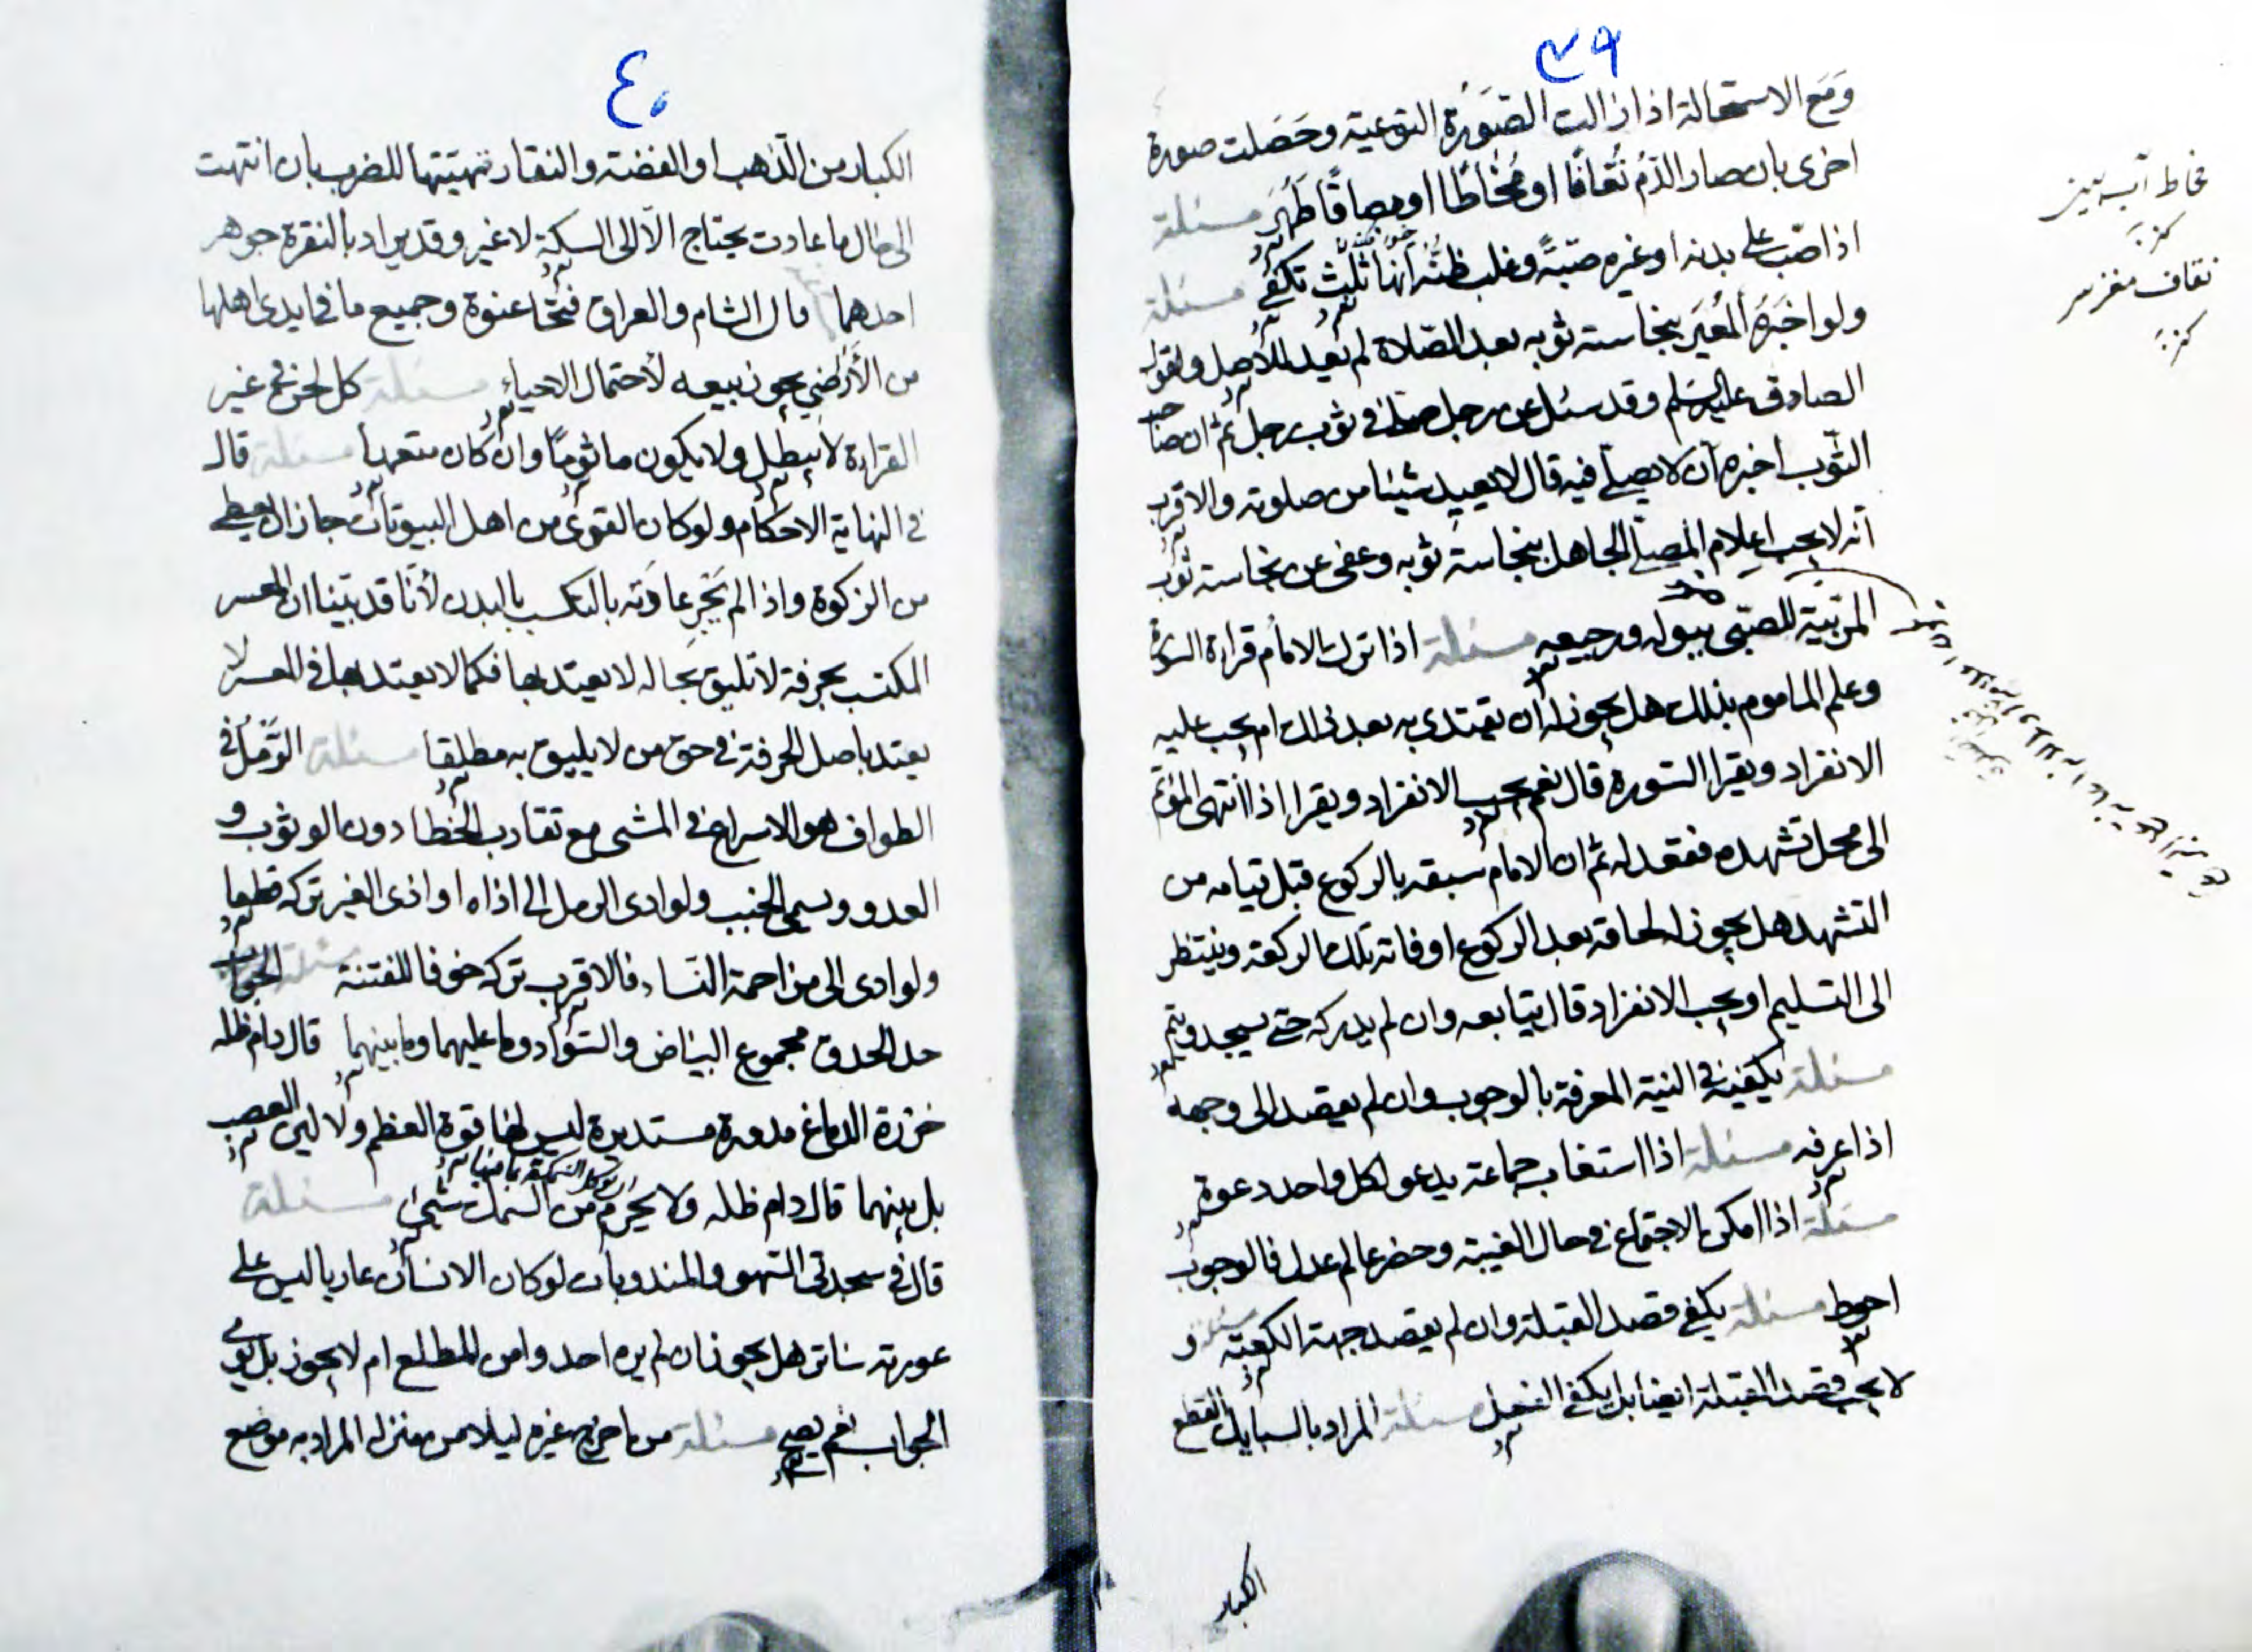 ٣٩
ومع الاستحالة اذا زالت الصورة النوعية وحصلت صورة
اخرى بان صار الدم نُقافًا او مُخاطًا او بصاقًا طَهُرَ مسئلة
اذا صبّ على بدنه او غيره صبّةً وغلب ظنّه انها ثلث تكفي مسئلة
ولو اخبره المُعير بنجاسته ثوبه بعد الصلاة لم يُعِد للاصل ولقول
الصادق عليه السلم وقد سئل عن رجل صلى في ثوب رجل ثم ان صاحب
الثوب اخبره ان لا يصلّى فيه قال لا يعيد شيئا من صلوته والاقرب
انه لا يجب اعلام المصلّي الجاهل بنجاسة ثوبه وعفى عن نجاسته ثوب
المربّية للصبّى ببوله ورجيعه مسئلة اذا ترك الامام قراءة السورة
وعلم الماموم بذلك هل يجوز له ان يقتدى به بعد ذلك ام يجب عليه
الانفراد ويقرا السورة قال نعم يجب الانفراد ويقرا اذا انتهى المؤتم
الى محل تشهده فقعد له ثم ان الامام سبقه بالركوع قبل قيامه من
التشهد هل يجوز له لحاقه بعد الركوع او فاته تلك الركعة وينتظر
الى التسليم او يجب الانفراد قال يتابعه وان لم يدركه حتى يسجد ويتم
مسئلة يكفيه في النية المعرفة بالوجوب وان لم يقصد الى وجهه
اذا عرفه مسئلة اذا استغاب جماعة يدعو لكل واحد دعوة
مسئلة اذا امكن الاجتماع في حال الغيبة وحضر عالم عدل فالوجوب
احوط مسئلة يكفي قصد القبلة وان لم يقصد جهة الكعبة مسئلة و
لا يجب قصد القبلة ايضا بل يكفي الفعل مسئلة المراد بالسبايك القطع
الكبار
مخاط آب بيني
كنز
نقاف مغز سر
كنز
٤٠
الكبار من الذهب او الفضة والنقار تهيّتها للضرب بان انتهت
الى حال ما عادت يحتاج الّا الى السكة لا غير وقد يراد بالنقرة جوهر
احدهما قال الشام والعراق فتحا عنوة وجميع ما في ايدى اهلها
من الأراضي يجوز بيعه لأحتمال الاحياء مسئلة كل لحن في غير
القراءة لا يبطل ولا يكون ماثومًا وان كان متعمدا مسئلة قال
في النهاية الاحكام ولو كان القوىّ من اهل البيوتات جاز ان يعطى
من الزكوة واذا لم تجر عادته بالتكسب بالبدن لأنا قد بيّنا ان المعسر
المكتسب بحرفة لا تليق بحاله لا يعتد بها فكما لا يعتد بها في العسر لا
يعتد باصل الحرفة في حق من لا يليق به مطلقا مسئلة الرَّمَلُ في
الطواف هو الاسراع في المشى مع تقارب الخطا دون الوثوب و
العدو ويسمى الخبب ولو ادى الرمل الى اذاه او اذى الغير تركه قطعا
ولو ادى الى مزاحمة النساء فالاقرب تركه خوفا للفتنة مسئلة الجواب
حد الحدق مجموع البياض والسواد وما عليهما وما بينهما قال دام ظله
خرزة الدماغ مدورة مستديرة ليس لها قوة العظم ولا لين العصب
بل بينهما قال دام ظله ولا يحرم من السمك شيئ مسئلة
قال في سجدتى السهو والمندوبات لو كان الانسان عاريا ليس على
عورته ساتر هل يجوز ان لم يره احد وامن المطلع ام لا يجوز بل
الجواب نعم يصح مسئلة من اخرج غيره ليلا من منزله المراد به موضع